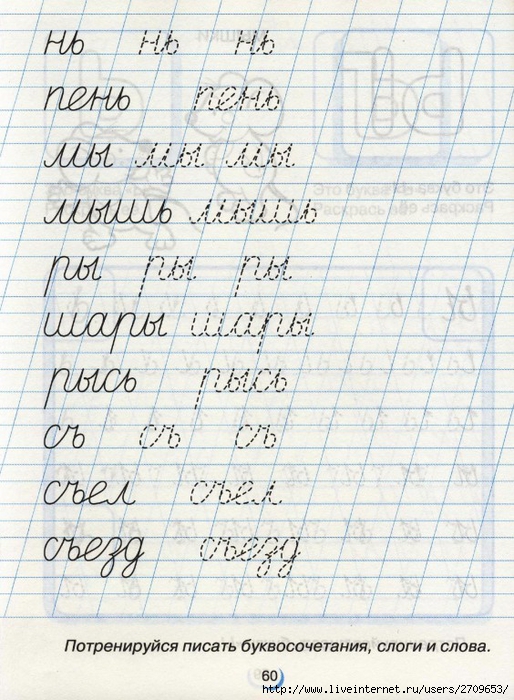 нь нь нь
пень пень
мы мы мы
мышь мышь
ры ры ры
шары шары
рысь рысь
съ съ съ
съел съел
съезд съезд
Потренируйся писать буквосочетания, слоги и слова.
60
http://www.liveinternet.ru/users/2709653/